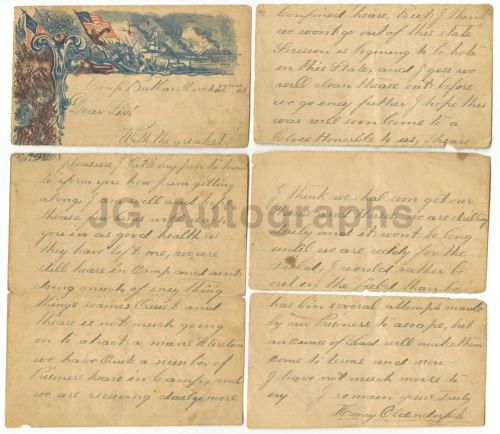 Camp Butler, March 12nd 62
Dear Sir!
With the greatest
pleasure I take my pen to hand
to iform you how I am getting
along, I am well and hope
thease few lines will reach
you in as good health as
they have left me, we are
still heare in Camp and aint
doing much of eney thing
things seames Quiet and
theare is not much going
on to atract a mans Atention
we have Quite a number of
Prisners heare in Camp, and
we are recurving daily more
Confined heare, But I think
we wont go out of this state
Secesion is begining to be hote
in this State, and I gess we
will clean thease out before
we go eney futher I hope this
war will soon come to a
Close Honorble to us, theare
has bin several attempts made
by our Prisners to ascape, but
an ounse of Lead will make them
come to terms and now
I have not much moore to
say I remain yours Truly
Henry Oldendorph
I think we shal soon get our
and then we are drilling
daily and it wont be long
until we are reddy for the
Field, I would rather be
out in the field than be
JG Autographs